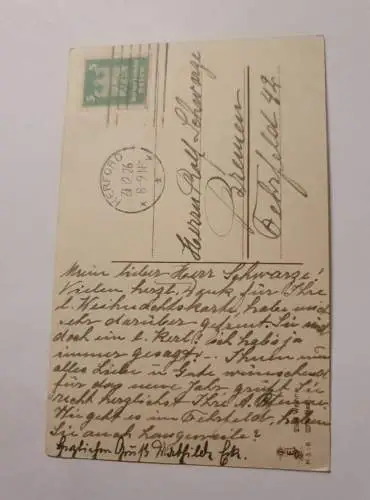 5
5
HERFORD 1
8-9 N
Herrn Rolf Schwarze
Bremen
Fehrfeld 42
Mein lieber Herr Schwarze!
Vielen herzl. Dank für Ihre
l. Weihnachtskarte, habe mich
sehr darüber gefreut. Sie sind
doch ein l. Kerl! ich hab's ja
immer gesagt! Ihnen nun
alles Liebe u. Gute wünschend
für das neue Jahr grüßt Sie
recht herzlichst Ihre A.
Wie geht es im Fehrfeld, haben
Sie auch Langeweile?
Herzlichen Gruß Mathilde Eck.